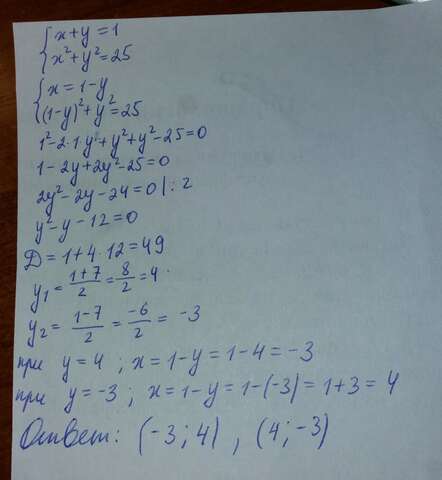 { x+y=1
{ x²+y²=25
{ x=1-y
{ (1-y)²+y²=25
1²-2·1·y+y²+y²-25=0
1-2y+2y²-25=0
2y²-2y-24=0 |:2
y²-y-12=0
Д=1+4·12=49
y₁=\frac{1+7}{2}=\frac{8}{2}=4.
y₂=\frac{1-7}{2}=\frac{-6}{2}=-3
при y=4 ; x=1-y=1-4=-3
при y=-3 ; x=1-y=1-(-3)=1+3=4
Ответ: (-3;4) , (4;-3)